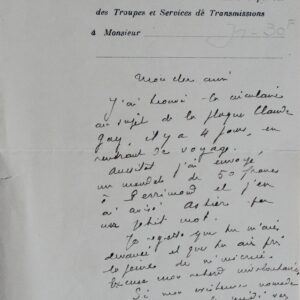 des Troupes et Services de Transmissions
à Monsieur
Mon cher ami
J'ai trouvé la circulaire
au sujet de la plaque Claude
Gay, il y a 4 jours, en
rentrant de voyage.
Aussitôt j'ai envoyé
un mandat de 50 francs
à Perrimond et j'en
ai avisé Astier par
un petit mot.
Je regrette que tu m'aies
devancé et que tu aies pris
la peine de m'écrire.
Excuse mon retard involontaire
Si nos